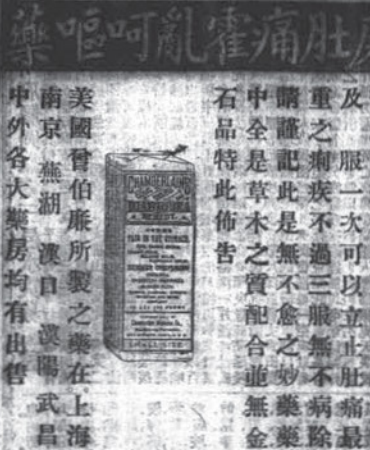 肚痛霍亂呵嘔藥
及 服一次可以立止肚痛最
重之痢疾不過三服無不病除
請謹記此是無不愈之妙藥藥
中全是草木之質配合並無金
石品特此佈告
CHAMBERLAIN'S
REMEDY
PAIN IN THE STOMACH
美國晉伯廉所製之藥在上海
南京 蕪湖 漢口 漢陽 武昌
中外各大藥房均有出售